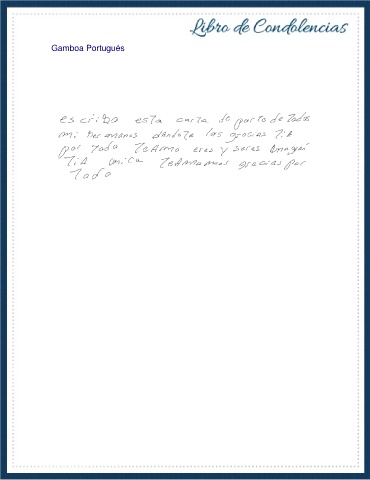 Libro de Condolencias
Gamboa Portugués
escribo esta carta de parte de Todos
mi hermanos dandote las gracias TIA
por Todo TeAmo eres y seras
TIA TeAmamos gracias por
Todo